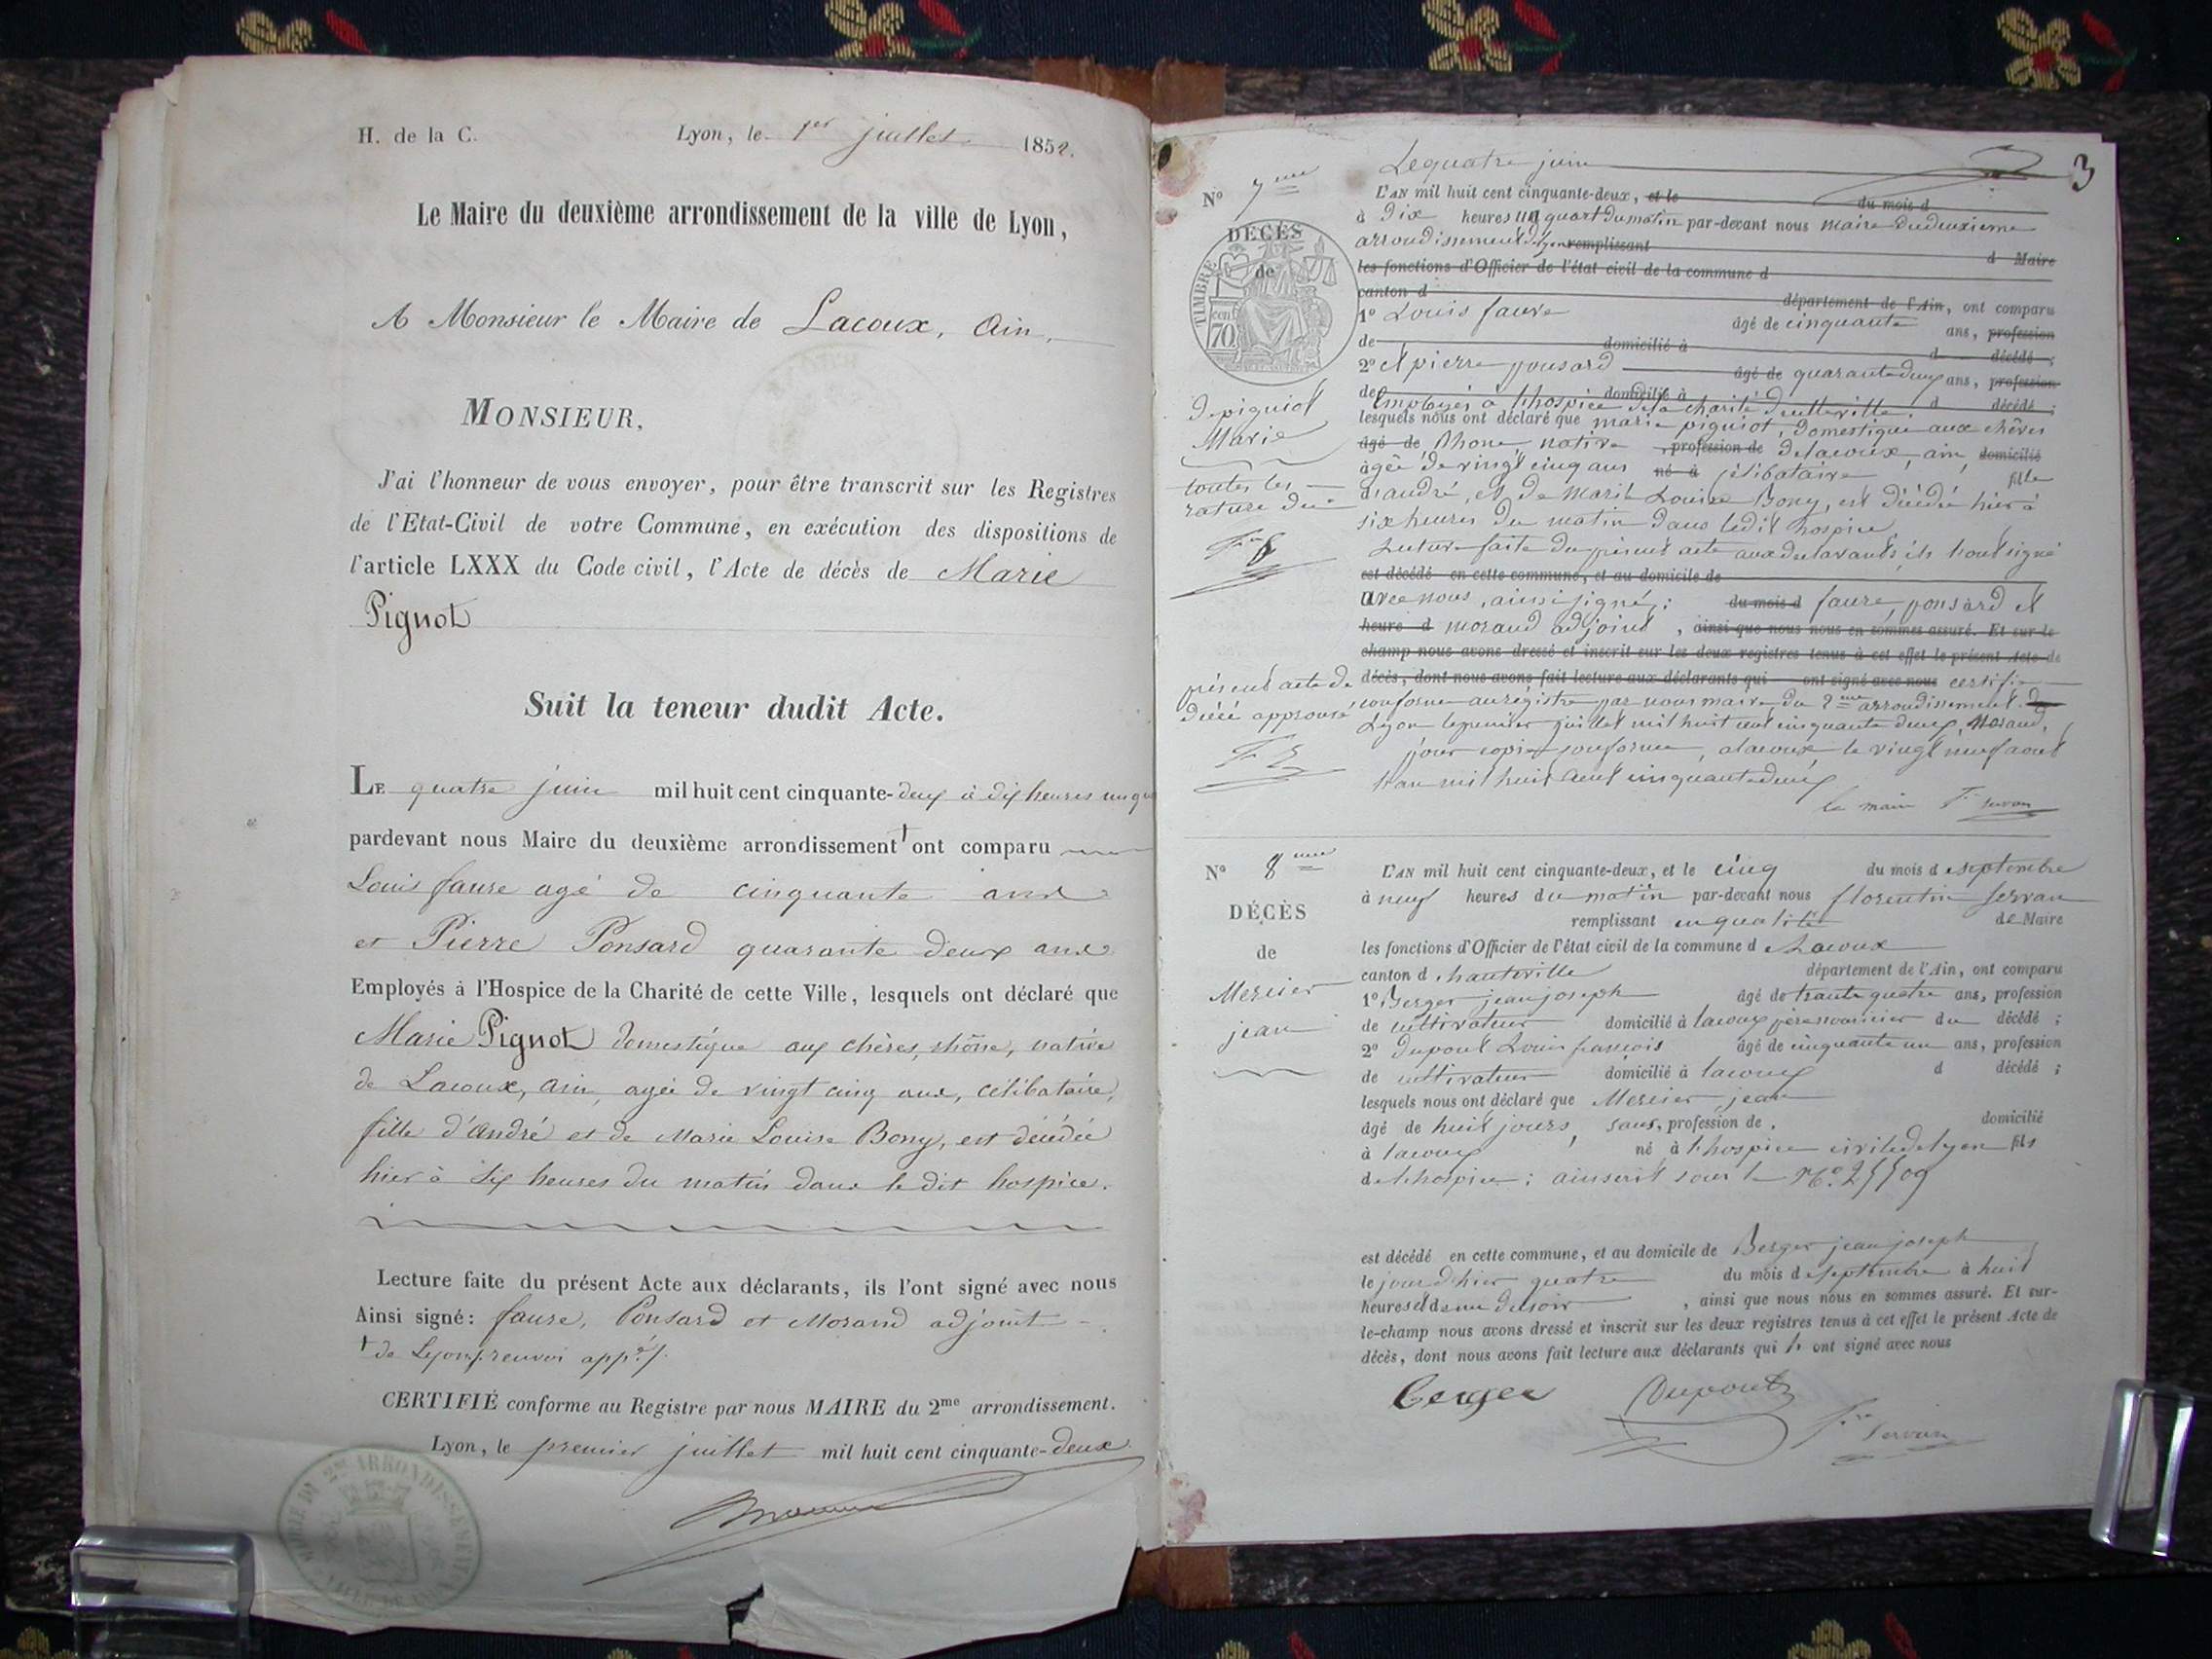 H. de la C. Lyon, le 1er juillet 1852.
Le Maire du deuxième arrondissement de la ville de Lyon,
A Monsieur le Maire de Lacoux, Ain,
MONSIEUR,
J'ai l'honneur de vous envoyer, pour être transcrit sur les Registres
de l'Etat-Civil de votre Commune, en exécution des dispositions de
l'article LXXX du Code civil, l'Acte de décès de Marie
Pignot
Suit la teneur dudit Acte.
LE quatre juin mil huit cent cinquante-deux à dix heures un qu
pardevant nous Maire du deuxième arrondissement † ont comparu
Louis faure agé de cinquante ans
et Pierre Ponsard quarante deux ans
Employés à l'Hospice de la Charité de cette Ville, lesquels ont déclaré que
Marie Pignot domestique aux chères, rhône, native
de Lacoux, ain, agée de vingt cinq ans, célibataire,
fille d'andré et de Marie Louise Bony, est décédée
hier à six heures du matin dans le dit hospice.
Lecture faite du présent Acte aux déclarants, ils l'ont signé avec nous
Ainsi signé: faure, Ponsard et Morand adjoint
† de Lyon, renvoi app.é
CERTIFIÉ conforme au Registre par nous MAIRE du 2me arrondissement.
Lyon, le premier juillet mil huit cent cinquante-deux
MAIRIE DU 2ME ARRONDISSEMENT
VILLE DE LYON
3
Le quatre juin
N° 7me
L'AN mil huit cent cinquante-deux, et le du mois d
à Dix heures un quart du matin par-devant nous maire du deuxieme
arrondissement de lyon remplissant d Maire
les fonctions d'Officier de l'état civil de la commune d
canton d département de l'Ain, ont comparu
1° Louis faure âgé de cinquante ans, profession
de domicilié à d décédé;
2° et pierre ponsard âgé de quarante deux ans, profession
de domicilié à d décédé;
Employés à l'hospice de la charité de cette ville.
lesquels nous ont déclaré que marie piguiot, domestique aux chêres
âgé de Rhone, native profession de de lacoux, ain, domicilié
agée de vingt cinq ans né à célibataire, fille
d'andré, et de marie Louise Bony, est décédée hier à
six heures du matin dans ledit hospice,
Lecture faite du présent acte aux déclarants, ils l'ont signé
est décédé en cette commune, et au domicile de
avec nous, ainsi signé: du mois d faure, ponsard et
heure d morand adjoint, ainsi que nous nous en sommes assuré. Et sur-le
champ nous avons dressé et inscrit sur les deux registres tenus à cet effet le présent Acte de
décès, dont nous avons fait lecture aux déclarants qui ont signé avec nous certifié
conforme au régistre par nous maire du 2me arrondissement de
Lyon le premier juillet mil huit cent cinquante deux, Morand,
pour copie conforme, à lacoux le vingt neuf aout
l'an mil huit cent cinquante deux
le maire Fin servan
DÉCÈS
de
TIMBRE
70 cent
De piguiot
Marie
toutes les
rature du
présent acte de
décé approuvé
N° 8me
DÉCÈS
de
Mercier
jean
L'AN mil huit cent cinquante-deux, et le cinq du mois d septembre
à neuf heures du matin par-devant nous florentin servan
remplissant en qualité de Maire
les fonctions d'Officier de l'état civil de la commune d Lacoux
canton d hauteville département de l'Ain, ont comparu
1° Berger jean joseph âgé de trante quatre ans, profession
de cultivateur domicilié à lacoux père nouricier du décédé;
2° Dupont Louis francois âgé de cinquante un ans, profession
de cultivateur domicilié à lacoux d décédé;
lesquels nous ont déclaré que Mercier jean
âgé de huit jours, sans, profession de, domicilié
à lacoux né à l'hospice civile de lyon fils
de l'hospice; ainscrit sous le N° 25509
est décédé en cette commune, et au domicile de Berger jean joseph
le jour d'hier quatre du mois d septembre à huit
heures et demi du soir, ainsi que nous nous en sommes assuré. Et sur-
le-champ nous avons dressé et inscrit sur les deux registres tenus à cet effet le présent Acte de
décès, dont nous avons fait lecture aux déclarants qui ont signé avec nous
Berger Dupont Fin Servan